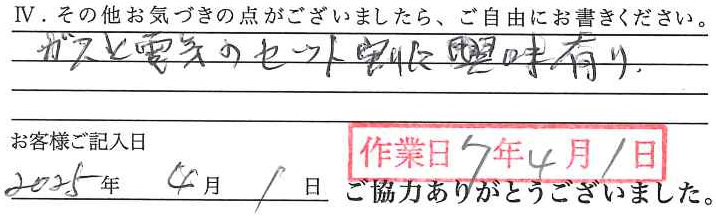 Ⅳ．その他お気づきの点がございましたら、ご自由にお書きください。
ガスと電気のセット割に興味有り.
お客様ご記入日
作業日 7年4月1日
2025年 4月 1日
ご協力ありがとうございました。